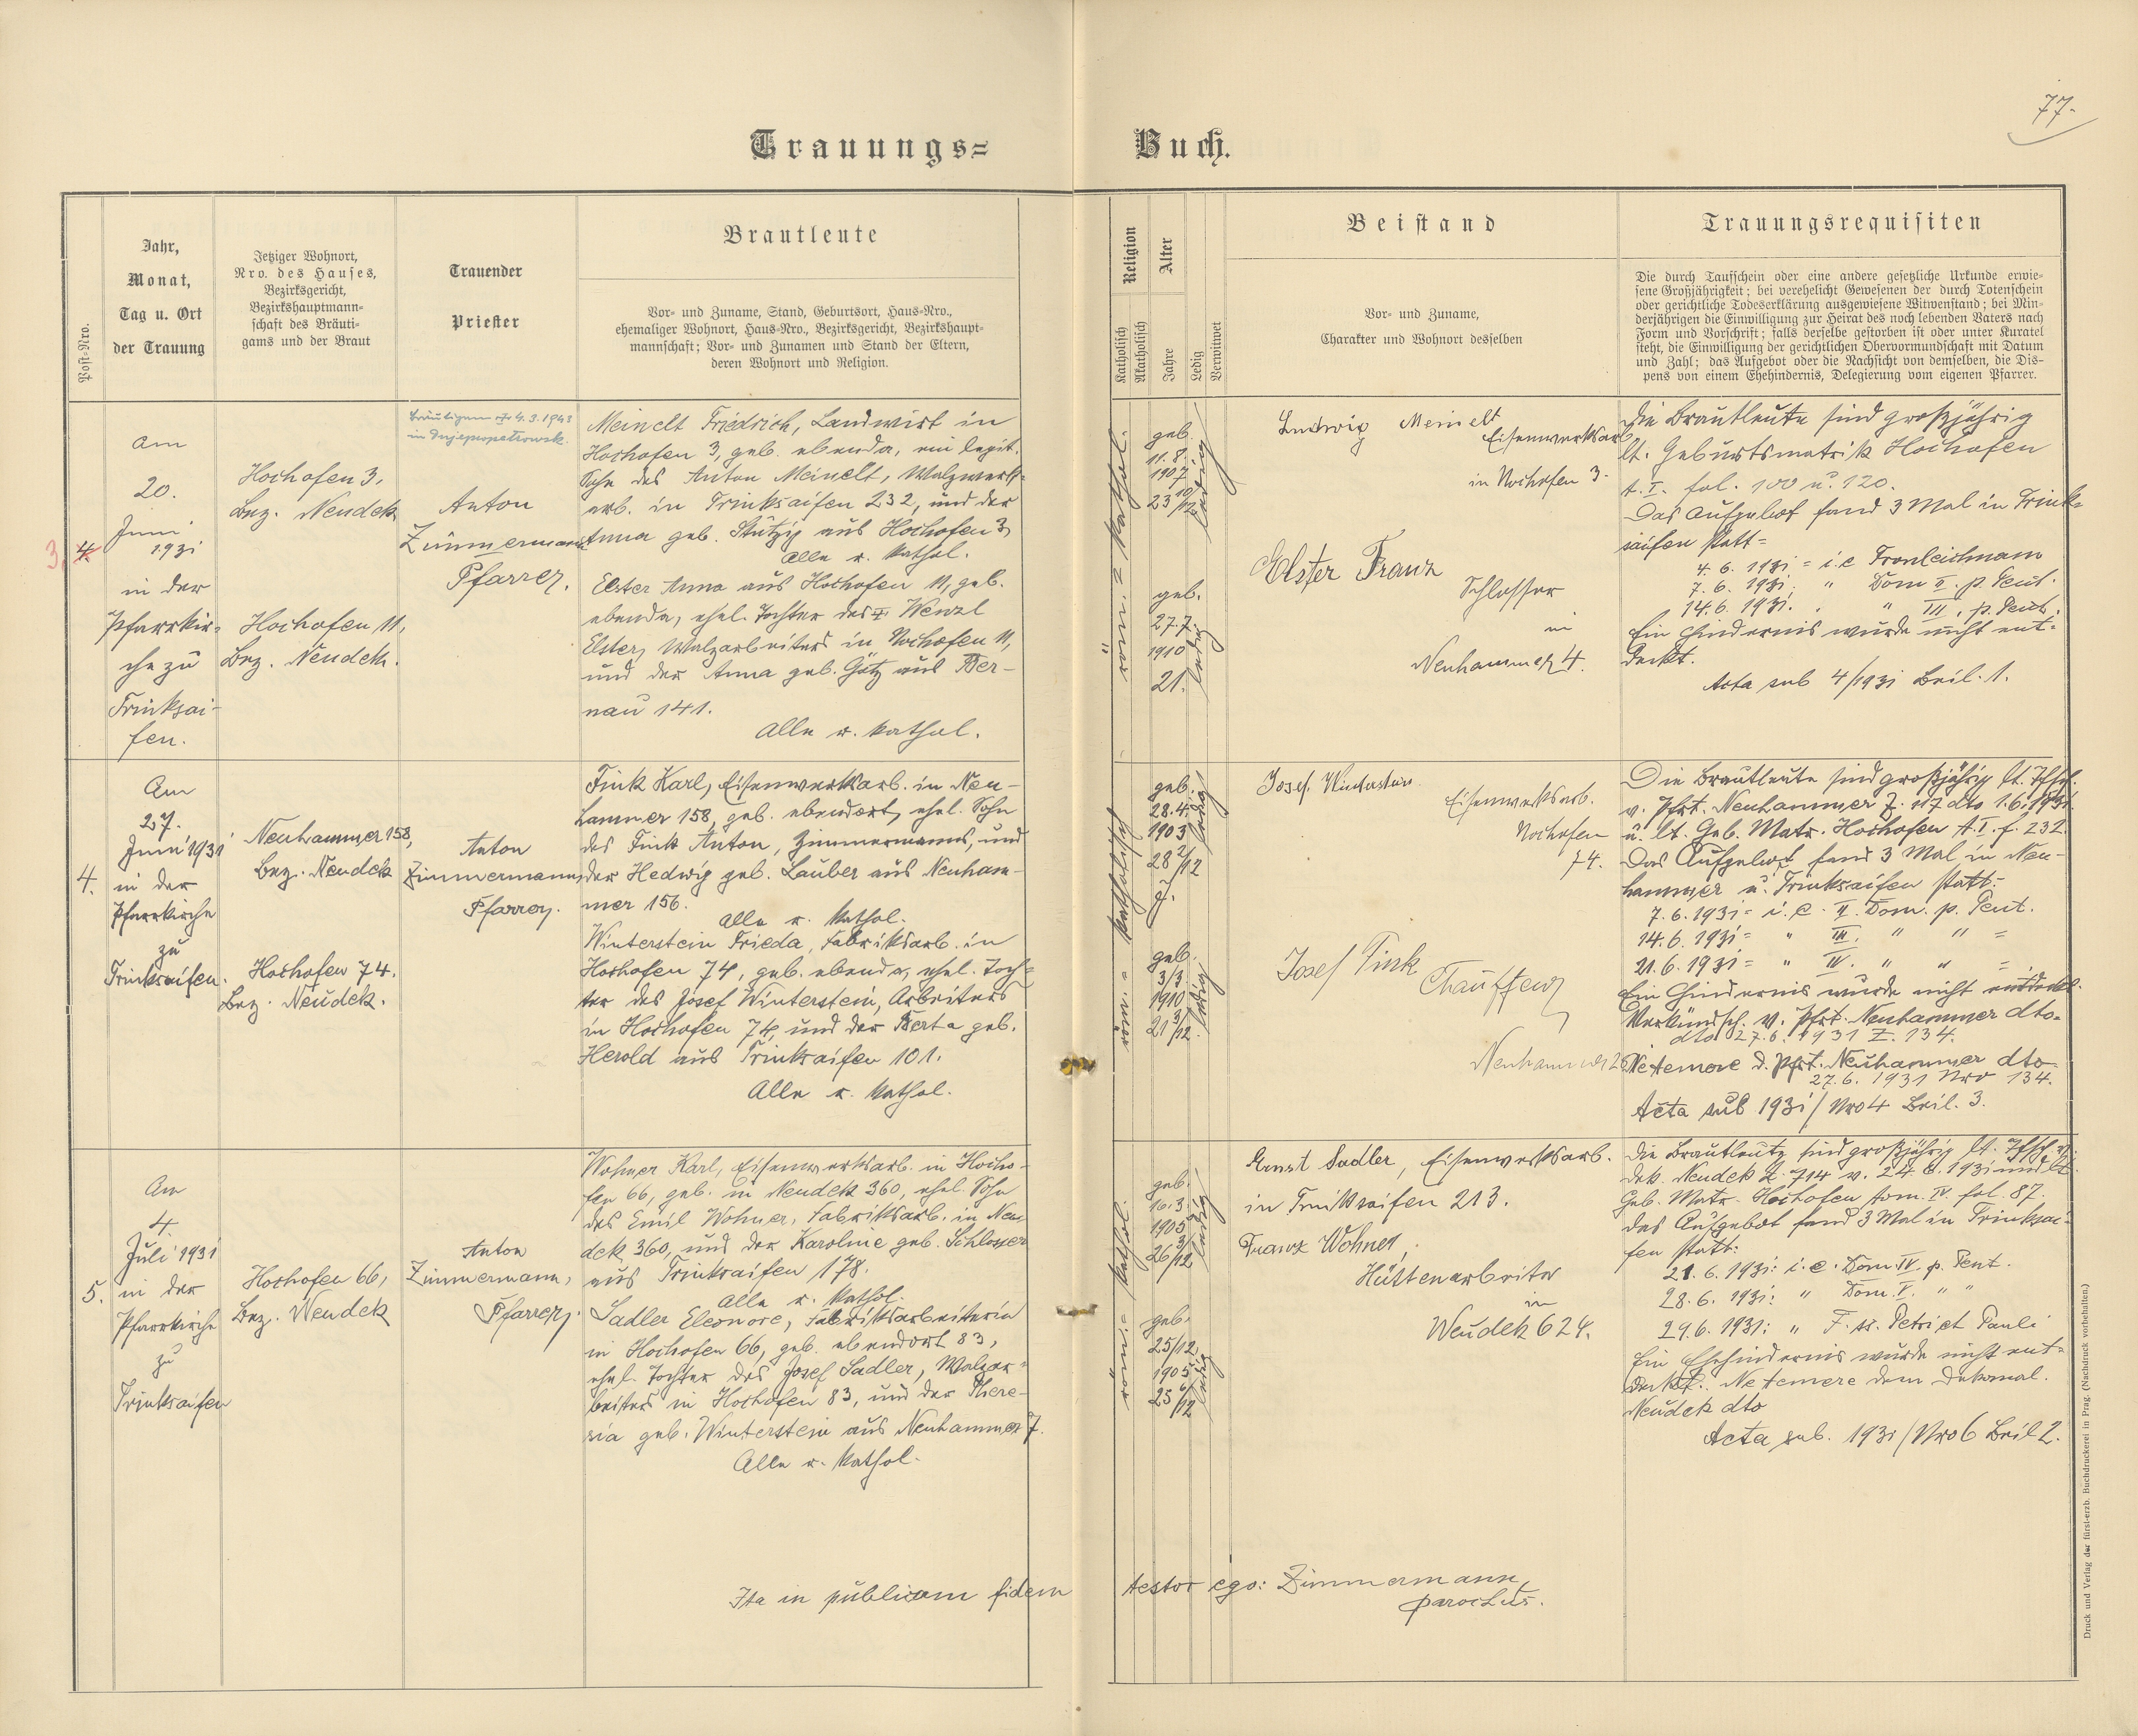 77.
Trauungs=
Buch.
Post=Nro.
Jahr,
Monat,
Tag u. Ort
der Trauung
Jetziger Wohnort,
Nro. des Hauses,
Bezirksgericht,
Bezirkshauptmann=
schaft des Bräuti=
gams und der Braut
Trauender
Priester
Brautleute
Vor= und Zuname, Stand, Geburtsort, Haus=Nro.,
ehemaliger Wohnort, Haus=Nro., Bezirksgericht, Bezirkshaupt=
mannschaft; Vor= und Zunamen und Stand der Eltern,
deren Wohnort und Religion.
Religion
Katholisch
Akatholisch
Alter
Jahre
Ledig
Verwitwet
Beistand
Vor= und Zuname,
Charakter und Wohnort desselben
Trauungsrequisiten
Die durch Taufschein oder eine andere gesetzliche Urkunde erwie=
sene Großjährigkeit; bei verehelicht Gewesenen der durch Totenschein
oder gerichtliche Todeserklärung ausgewiesene Witwenstand; bei Min=
derjährigen die Einwilligung zur Heirat des noch lebenden Vaters nach
Form und Vorschrift; falls derselbe gestorben ist oder unter Kuratel
steht, die Einwilligung der gerichtlichen Obervormundschaft mit Datum
und Zahl; das Aufgebot oder die Nachsicht von demselben, die Dis=
pens von einem Ehehindernis, Delegierung vom eigenen Pfarrer.
3. 4.
Am
20.
Juni
1931
in der
Pfarrkir=
che zu
Trinksai=
fen.
Hochofen 3,
Bez. Neudek
Hochofen 11,
Bez. Neudek.
Bräutigam 4.3.1943
in Dnjepropetrowsk.
Anton
Zimmermann
Pfarrer.
Meinelt Friedrich, Landwirt in
Hochofen 3, geb. ebenda, ein legit.
Sohn des Anton Meinelt, Walzwerk=
arb. in Trinksaifen 232, und der
Anna geb. Stützig aus Hochofen 3
Alle r. kathol.
Elster Anna aus Hochofen 11, geb.
ebenda, ehel. Tochter des Wenzl
Elster, Walzarbeiters in Hochofen 11,
und der Anna geb. Götz aus Ber=
nau 141.
Alle r. kathol.
röm. = kathol.
geb.
11.8.
1907
23 10/12
ledig
geb.
27.7.
1910
21.
ledig
Ludwig Meinelt
Eisenwerksarb.
in Hochofen 3.
Elster Franz
Schlosser
in
Neuhammer 4.
Die Brautleute sind großjährig
lt. Geburtsmatrik Hochofen
t. I. fol. 100 u. 120.
Das Aufgebot fand 3 Mal in Trink=
saifen statt=
4. 6. 1931 = i. e Fronleichnam
7. 6. 1931. " Dom II. p. Pent.
14. 6. 1931. " III. p. Pent.
Ein Hindernis wurde nicht ent=
deckt.
Acta sub 4/1931 Beil. 1.
4.
Am
27.
Juni 1931
in der
Pfarrkirche
zu
Trinksaifen.
Neuhammer 158,
Bez. Neudek
Hochofen 74.
Bez. Neudek.
Anton
Zimmermann,
Pfarrer.
Fink Karl, Eisenwerksarb. in Neu=
hammer 158, geb. ebendort, ehel. Sohn
des Fink Anton, Zimmermanns, und
der Hedwig geb. Lauber aus Neuham=
mer 156.
Alle r. kathol.
Winterstein Frieda, Fabriksarb. in
Hochofen 74, geb. ebenda, ehel. Toch=
ter des Josef Winterstein, Arbeiters
in Hochofen 74, und der Berta geb.
Herold aus Trinksaifen 101.
Alle r. kathol.
röm. = katholisch
geb.
28.4.
1903
28 2/12
J.
ledig
geb.
3/3.
1910
21 3/12.
ledig
Josef Winterstein
Eisenwerksarb.
Hochofen
74.
Josef Fink
Chauffeur
Neuhammer
Die Brautleute sind großjährig lt. Tfsch.
v. Pfrt. Neuhammer Z. 117 dto 1.6.1931.
u. lt. Geb. Matr. Hochofen t. I. f. 232.
Das Aufgebot fand 3 Mal in Neu=
hammer u. Trinksaifen statt:
7. 6. 1931 = i. e. II. Dom. p. Pent.
14. 6. 1931 = " III. " " =
21. 6. 1931 = " IV. " " =
Ein Hindernis wurde nicht entdeckt.
Verkündsch. v. Pfrt. Neuhammer dto.
dto 27. 6. 1931 Z. 134.
Ne temere d. Pfrt. Neuhammer dto
27. 6. 1931 Nro 134.
Acta sub 1931/Nro 4 Beil. 3.
5.
Am
4.
Juli 1931
in der
Pfarrkirche
zu
Trinksaifen
Hochofen 66,
Bez. Neudek
Anton
Zimmermann,
Pfarrer.
Wohner Karl, Eisenwerksarb. in Hocho=
fen 66, geb. in Neudek 360, ehel. Sohn
des Emil Wohner, Fabriksarb. in Neu=
dek 360, und der Karoline geb. Schlosser
aus Trinksaifen 178.
Alle r. kathol.
Sadler Eleonore, Fabriksarbeiterin
in Hochofen 66, geb. ebendort 83,
ehel. Tochter des Josef Sadler, Walzar=
beiters in Hochofen 83, und der There=
sia geb. Winterstein aus Neuhammer 7.
Alle r. kathol.
röm. = kathol.
geb.
16.3.
1905
26 3/12
ledig
geb.
25/12
1905
25 6/12
ledig
Ernst Sadler, Eisenwerksarb.
in Trinksaifen 213.
Franz Wohner,
Hüttenarbeiter
in
Neudek 624.
Die Brautleute sind großjährig lt. Tfsch. v.
Dek. Neudek Z. 714 v. 24. 6. 1931 und lt.
Geb. Matr. Hochofen tom. IV. fol. 87.
Das Aufgebot fand 3 Mal in Trinksai=
fen statt:
21. 6. 1931: i. e. Dom. IV. p. Pent.
28. 6. 1931: " Dom. V. " "
29. 6. 1931: " F. ss. Petri et Pauli
Ein Ehehindernis wurde nicht ent=
deckt. Ne temere dem Dekanal.
Neudek dto
Acta sub. 1931/Nro 6 Beil 2.
Ita in publicam fidem testor ego: Zimmermann,
parochus.
Druck und Verlag der fürst-erzb. Buchdruckerei in Prag. (Nachdruck vorbehalten.)